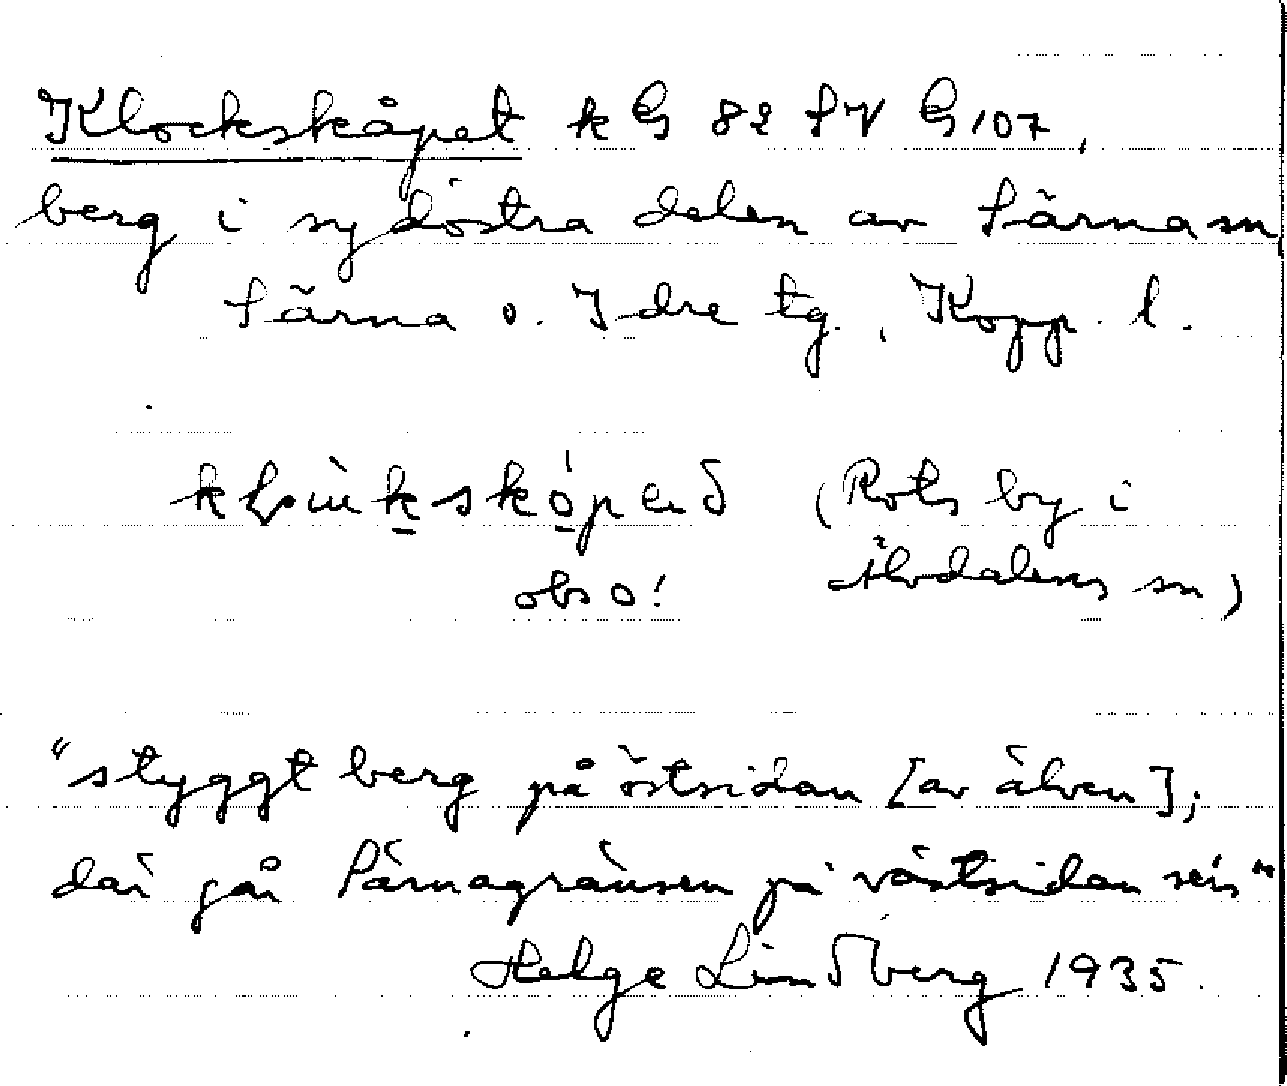 Klockskåpet k G 82 SV G 107,
berg i sydöstra delen av Särna sn
Särna o. Idre tg., Kopp. l.
(Rots by i
obs o! Älvdalens sn)
"styggt berg på östsidan [av älven];
där går Särnagränsen på västsidan
Helge Lindberg 1935.